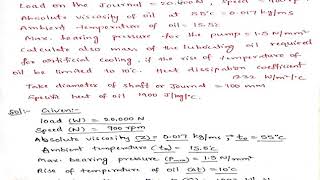 Load on the Journal = 20,600 N, Speed = 900 rpm
Absolute viscosity of oil at 55°C = 0.017 kg/ms
Ambient temperature of oil = 15.5°C
Max. bearing pressure for the pump = 1.5 N/mm²
Calculate also mass of the lubricating oil required
for artificial cooling, if the rise of temperature of
oil be limited to 10°C. Heat dissipation coefficient
1232 W/m²/°C
Take diameter of shaft or Journal = 100 mm
Specific heat of oil 1900 J/kg/°C.
Sol:- Given:-
load (W) = 20,000 N
Speed (N) = 900 rpm
Absolute viscosity (Z) = 0.017 kg/ms, t₀ = 55°C
Ambient temperature (ta) = 15.5°C
Max. bearing pressure = 1.5 N/mm²
Rise of temperature of oil (Δt) = 10°C